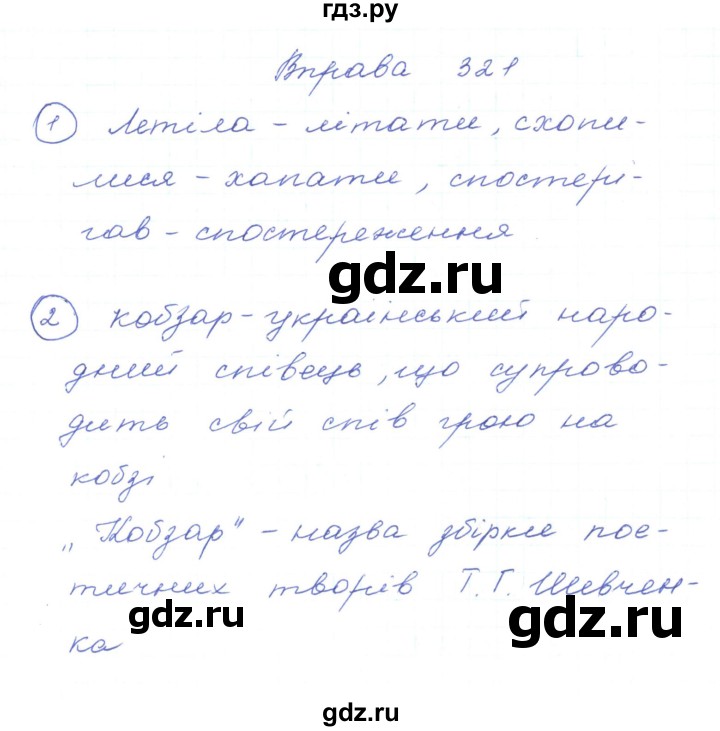 гдз.ру
Вправа 321
1 Летіла – літати, схопи-
лися – хапати, спостері-
гав – спостереження
gdz.ru
2 кобзар – український наро-
дний співець, що супрово-
дить свій спів грою на
кобзі
gdz.ru
„Кобзар" – назва збірки пое-
тичних творів Т. Г. Шевчен-
gdz.ru
gdz.ru
ка
gdz.ru